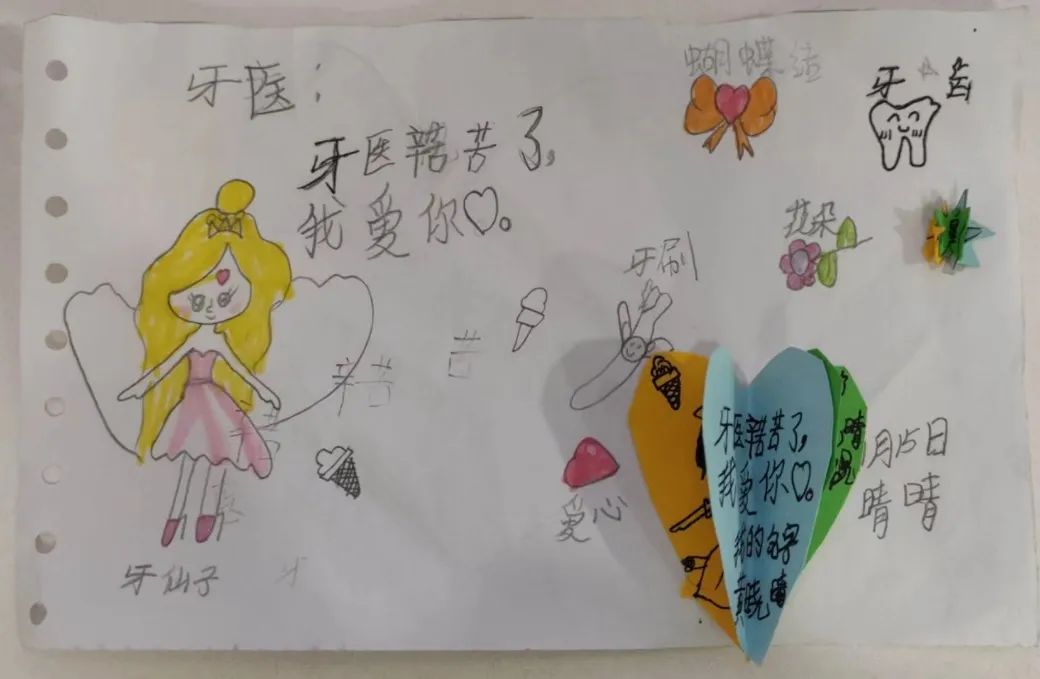 牙医：
牙医辛苦了，
我爱你♡。
蝴蝶结
牙齿
花朵
牙刷
辛苦
苦
爱心
牙仙子
牙
牙医辛苦了，
我爱你♡。
我的名字
黄晓晴
晴
1月15日
晴晴